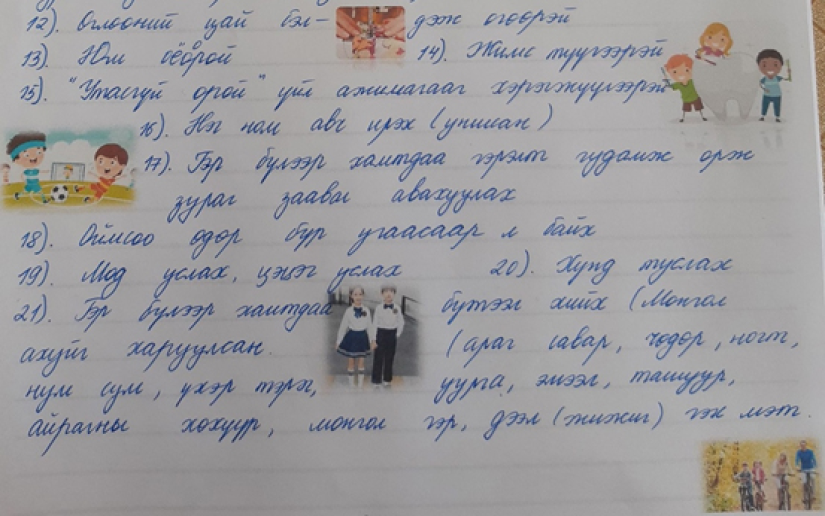 12). Өглөөний цай бэл- дэж өгөөрэй
13). Юм оёорой 14). Жимс түүгээрэй
15). "Утасгүй орой" үйл ажиллагааг хэрэгжүүлээрэй
16). Нэг ном авч ирэх (уншсан)
17). Гэр бүлээр хамтдаа гэрэлт гудамж орж
зураг заавал авахуулах
18). Оймсоо өдөр бүр угаасаар л байх
19). Мод услах, цэцэг услах 20). Хүнд туслах
21). Гэр бүлээр хамтдаа бүтээл хийх (Монгол
ахуйг харуулсан. (араг савар, чөдөр, ногт,
нум сум, үхэр тэрэг, уурга, эмээл, ташуур,
айрагны хөхүүр, монгол гэр, дээл (жижиг) гэх мэт.